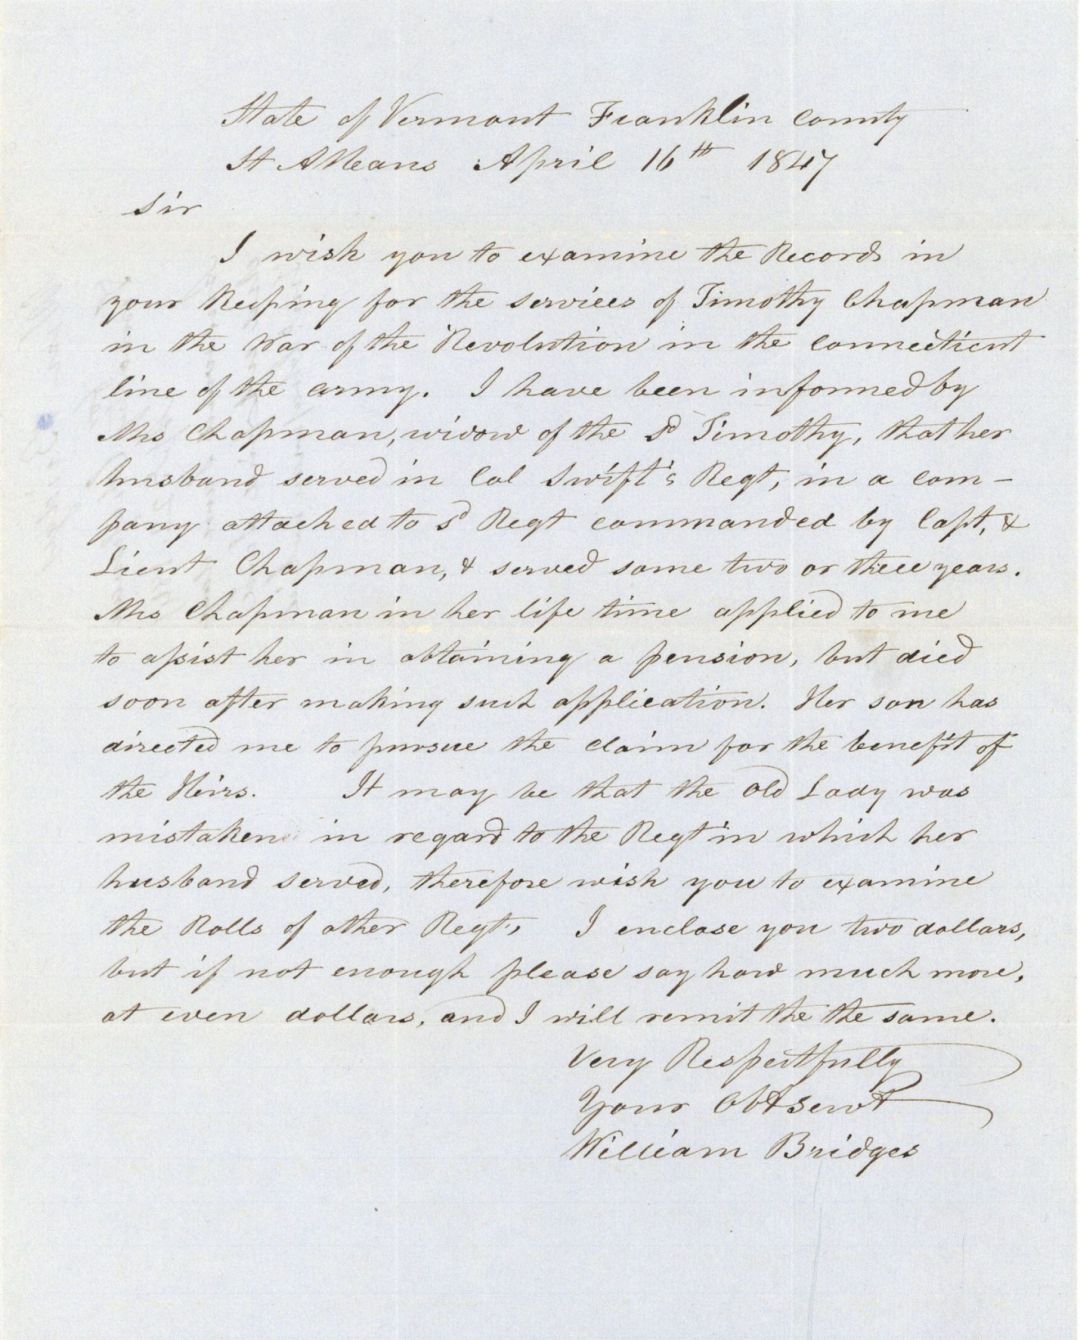 State of Vermont Franklin County
St Albans April 16th 1847
Sir
I wish you to examine the Records in
your Keeping for the services of Timothy Chapman
in the War of the Revolution in the Connecticut
line of the army. I have been informed by
Mrs Chapman, widow of the Sd Timothy, that her
husband served in Col Swift's Regt, in a com-
pany attached to Sd Regt commanded by Capt, &
Lieut Chapman, & served some two or three years.
Mrs Chapman in her life time applied to me
to assist her in obtaining a pension, but died
soon after making such application. Her son has
directed me to pursue the claim for the benefit of
the Heirs. It may be that the Old Lady was
mistaken in regard to the Regt in which her
husband served, therefore wish you to examine
the Rolls of other Regts, I enclose you two dollars,
but if not enough please say how much more,
at even dollars, and I will remit the the same.
Very Respectfully
Your Obt Servt
William Bridges